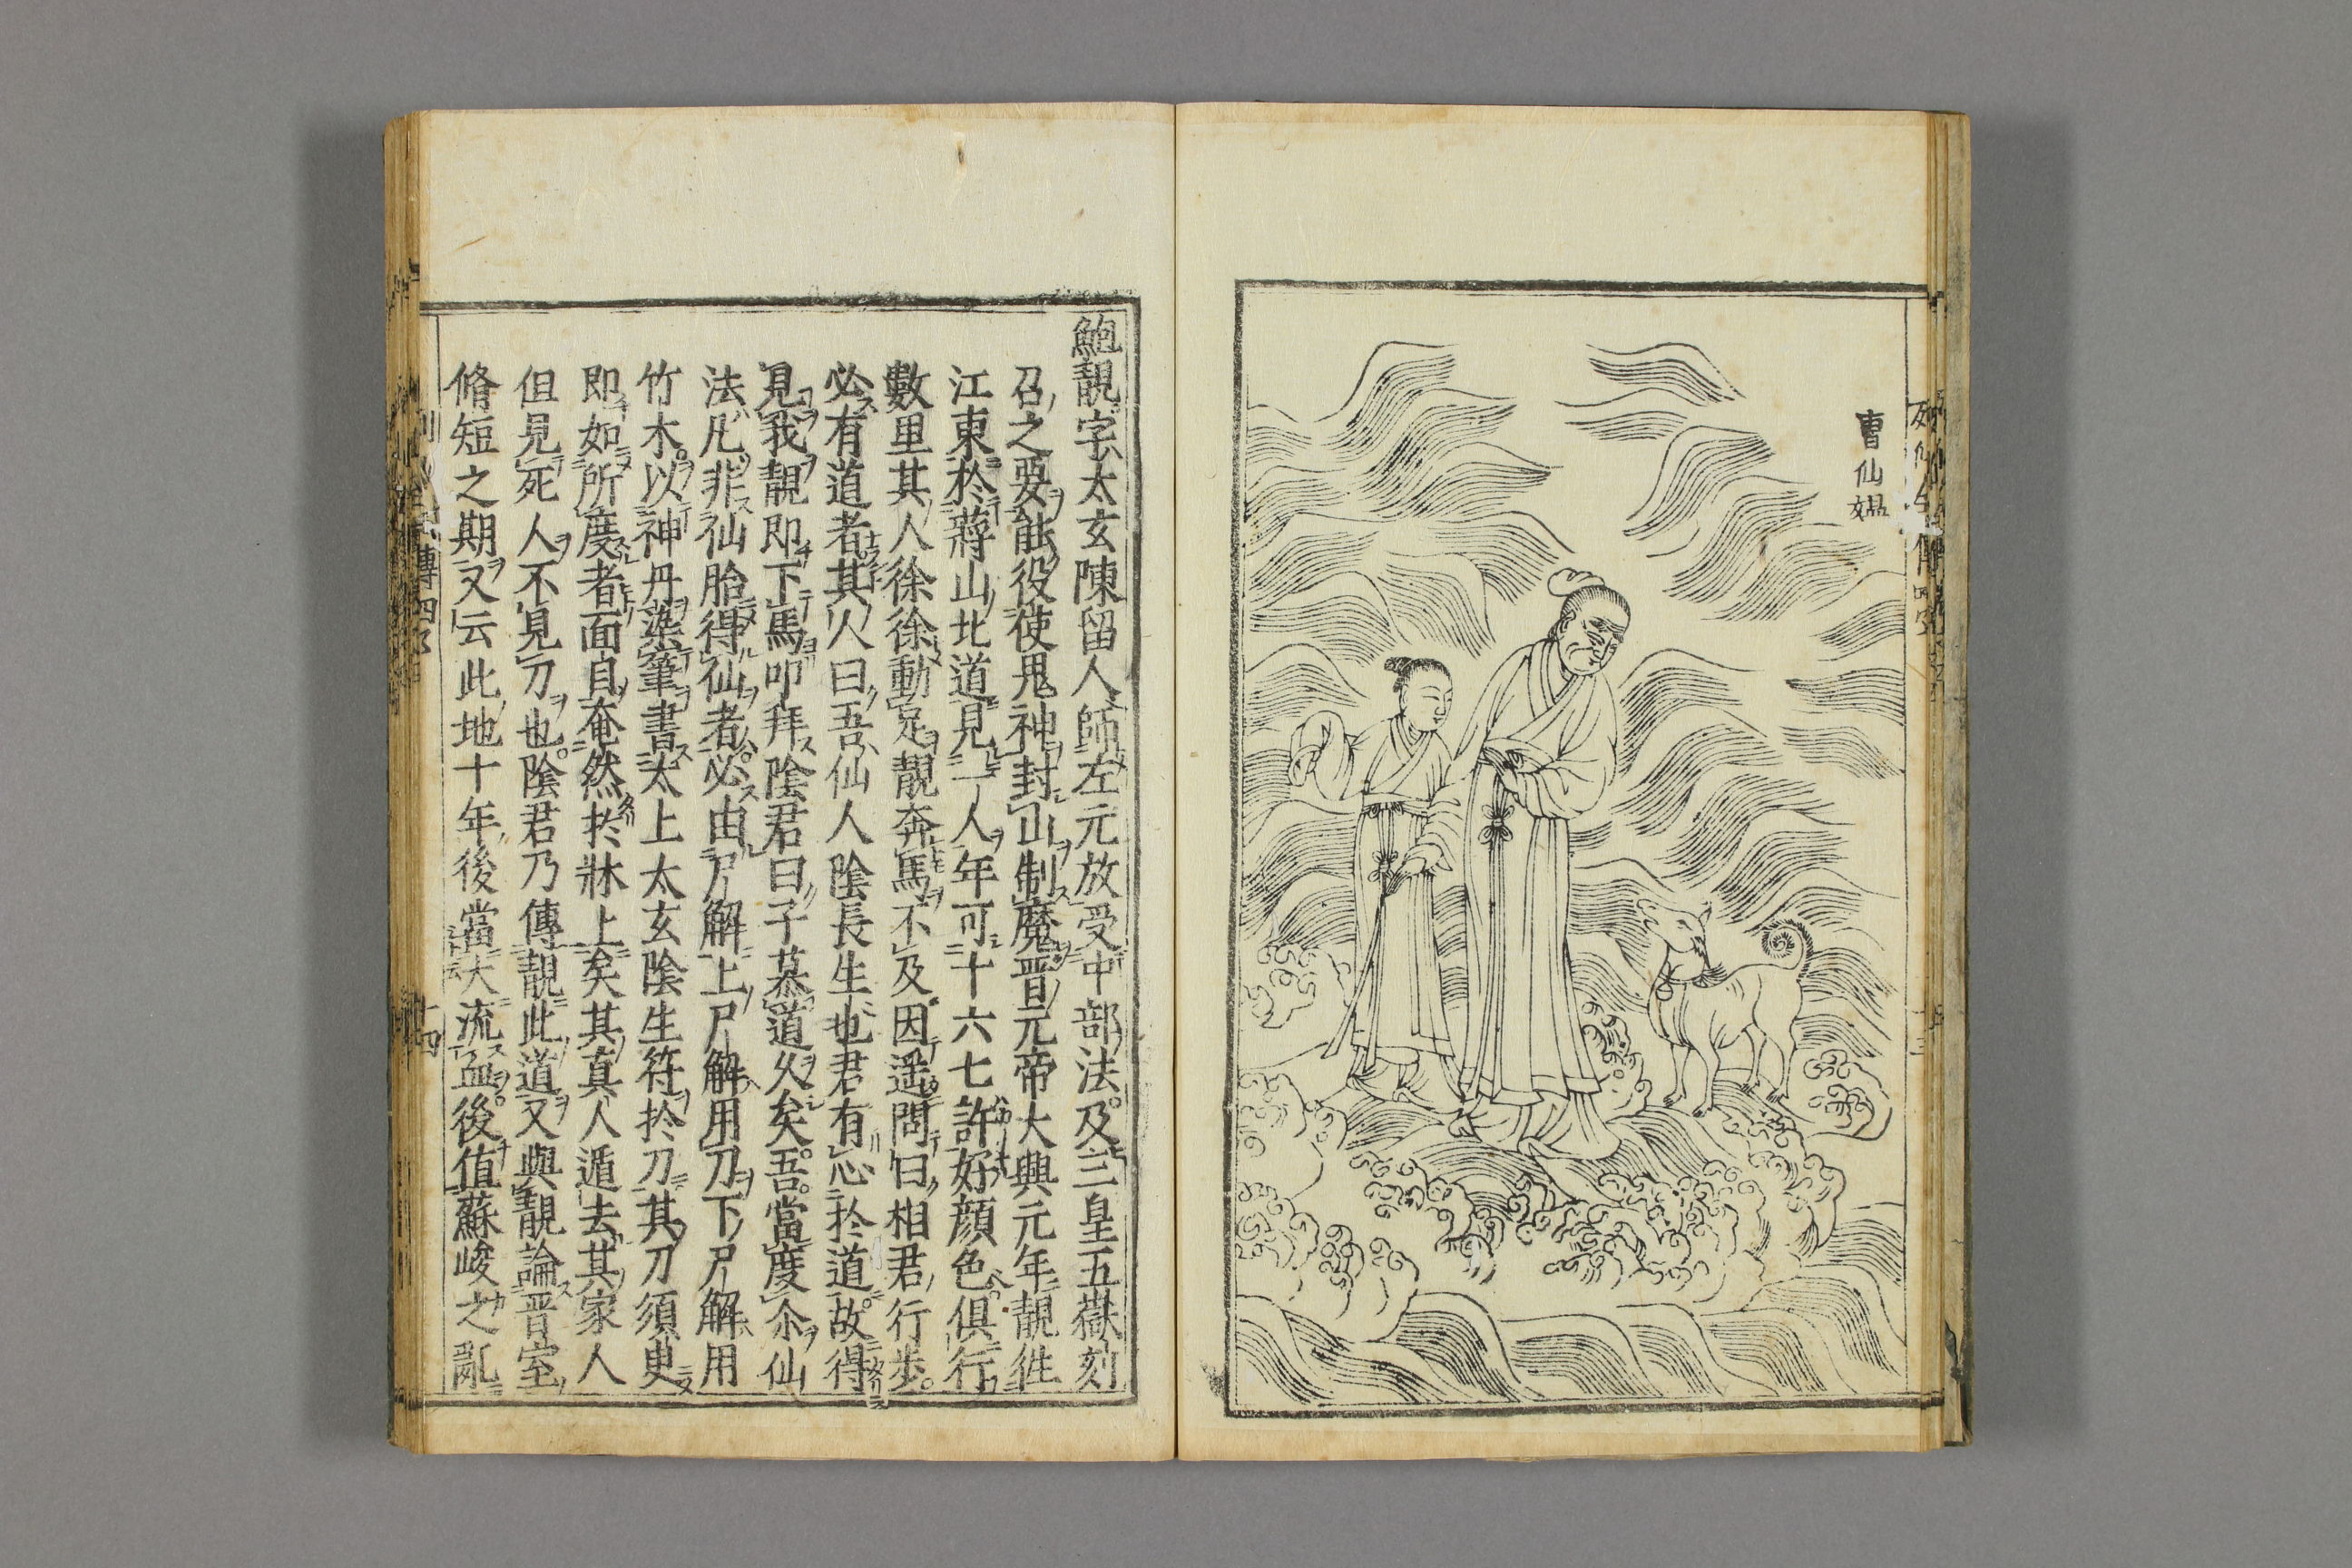 曹仙媪
鮑靚字太玄陳留人師左元放受中部法及三皇五嶽刻
召之要能役使鬼神封山制魔晋元帝大興元年靚徃
江東於蔣山北道見一人年可十六七許好顔色俱行
數里其人徐徐動足靚奔馬不及因遥問曰相君行歩
必有道者其人曰吾仙人陰長生也君有心於道故得
見我靚即下馬叩拜陰君曰子慕道久矣吾當度尒仙
法凡非仙胎得仙者必由尸解上尸解用刀下尸解用
竹木以神丹染筆書太上太玄陰生符於刀其刀須臾
即如所度者面自奄然於牀上矣其真人遁去其家人
但見死人不見刀也陰君乃傳靚此道又與靚論晋室
脩短之期又云此地十年後當大流血後値蘇峻之亂
傳四
十四